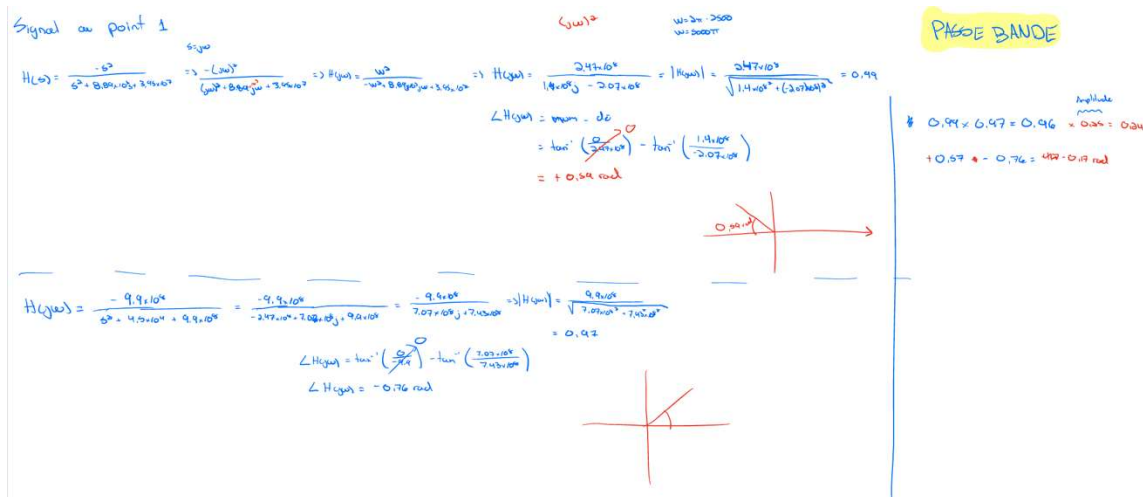 Signal au point 1
(jω)²
ω = 2π · 2500
ω = 5000π
PASSE BANDE
s = jω
H(s) = -s² / (s² + 8,89×10³s + 3,95×10⁷) => -(jω)² / ((jω)² + 8,89 jω + 3,95×10⁷) => H(jω) = ω² / (-ω² + 8,89 jω + 3,95×10⁷) => H(jω) = 2,47×10⁸ / (1,4×10⁸j - 2,07×10⁸) = |H(jω)| = 2,47×10⁸ / √(1,4×10⁸² + (-2,07×10⁸)²) = 0,99
∠H(jω) = num - dé
= tan⁻¹(0 / 2,47×10⁸) 0 - tan⁻¹(1,4×10⁸ / -2,07×10⁸)
= + 0,59 rad
Amplitude
0,99 × 0,97 = 0,96 × 0,25 = 0,24
+ 0,57 - 0,76 = - 0,17 rad
0,59 rad
H(jω) = -9,9×10⁸ / (s² + 4,5×10⁴ + 9,9×10⁸) = -9,9×10⁸ / (-2,47×10⁸ + 7,07×10⁸j + 9,9×10⁸) = -9,9×10⁸ / (7,07×10⁸j + 7,43×10⁸) => |H(jω)| = 9,9×10⁸ / √(7,07×10⁸² + 7,43×10⁸²)
= 0,97
∠H(jω) = tan⁻¹(0 / -9,9) 0 - tan⁻¹(7,07×10⁸ / 7,43×10⁸)
∠H(jω) = -0,76 rad